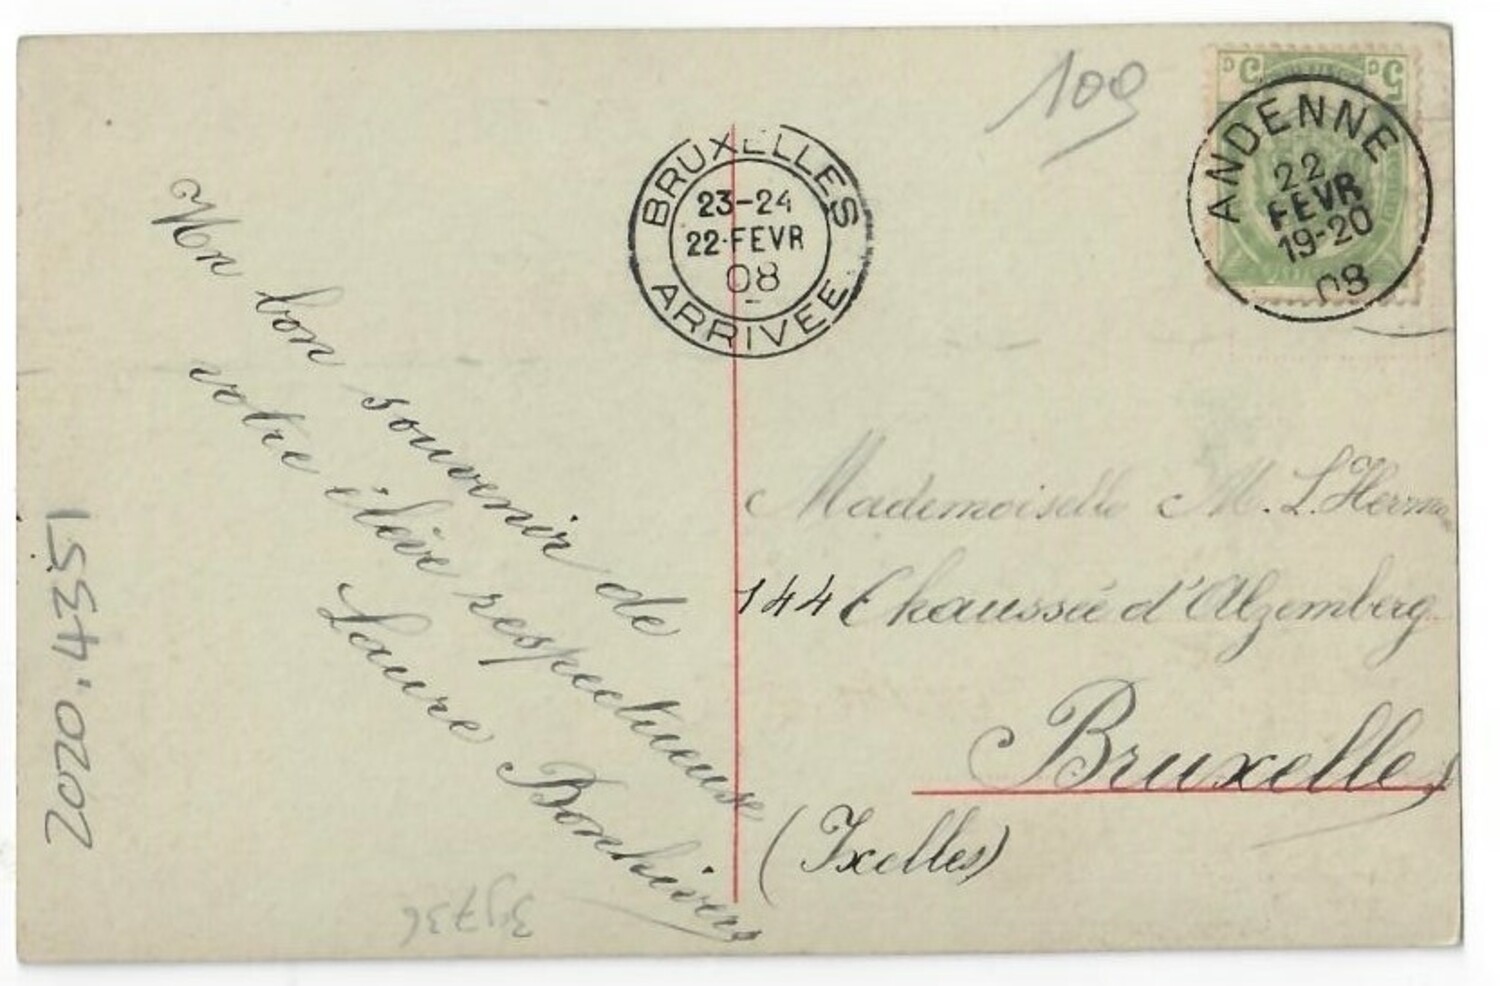 100
5c 5c
ANDENNE
22
FEVR
19-20
08
BRUXELLES
23-24
22·FEVR
08
ARRIVEE
Un bon souvenir de
votre élève respectueuse
Laure Bonhivers
Mademoiselle M. L. Herma
144 Chaussée d'Alzemberg
Bruxelles
(Ixelles)
2020.4351